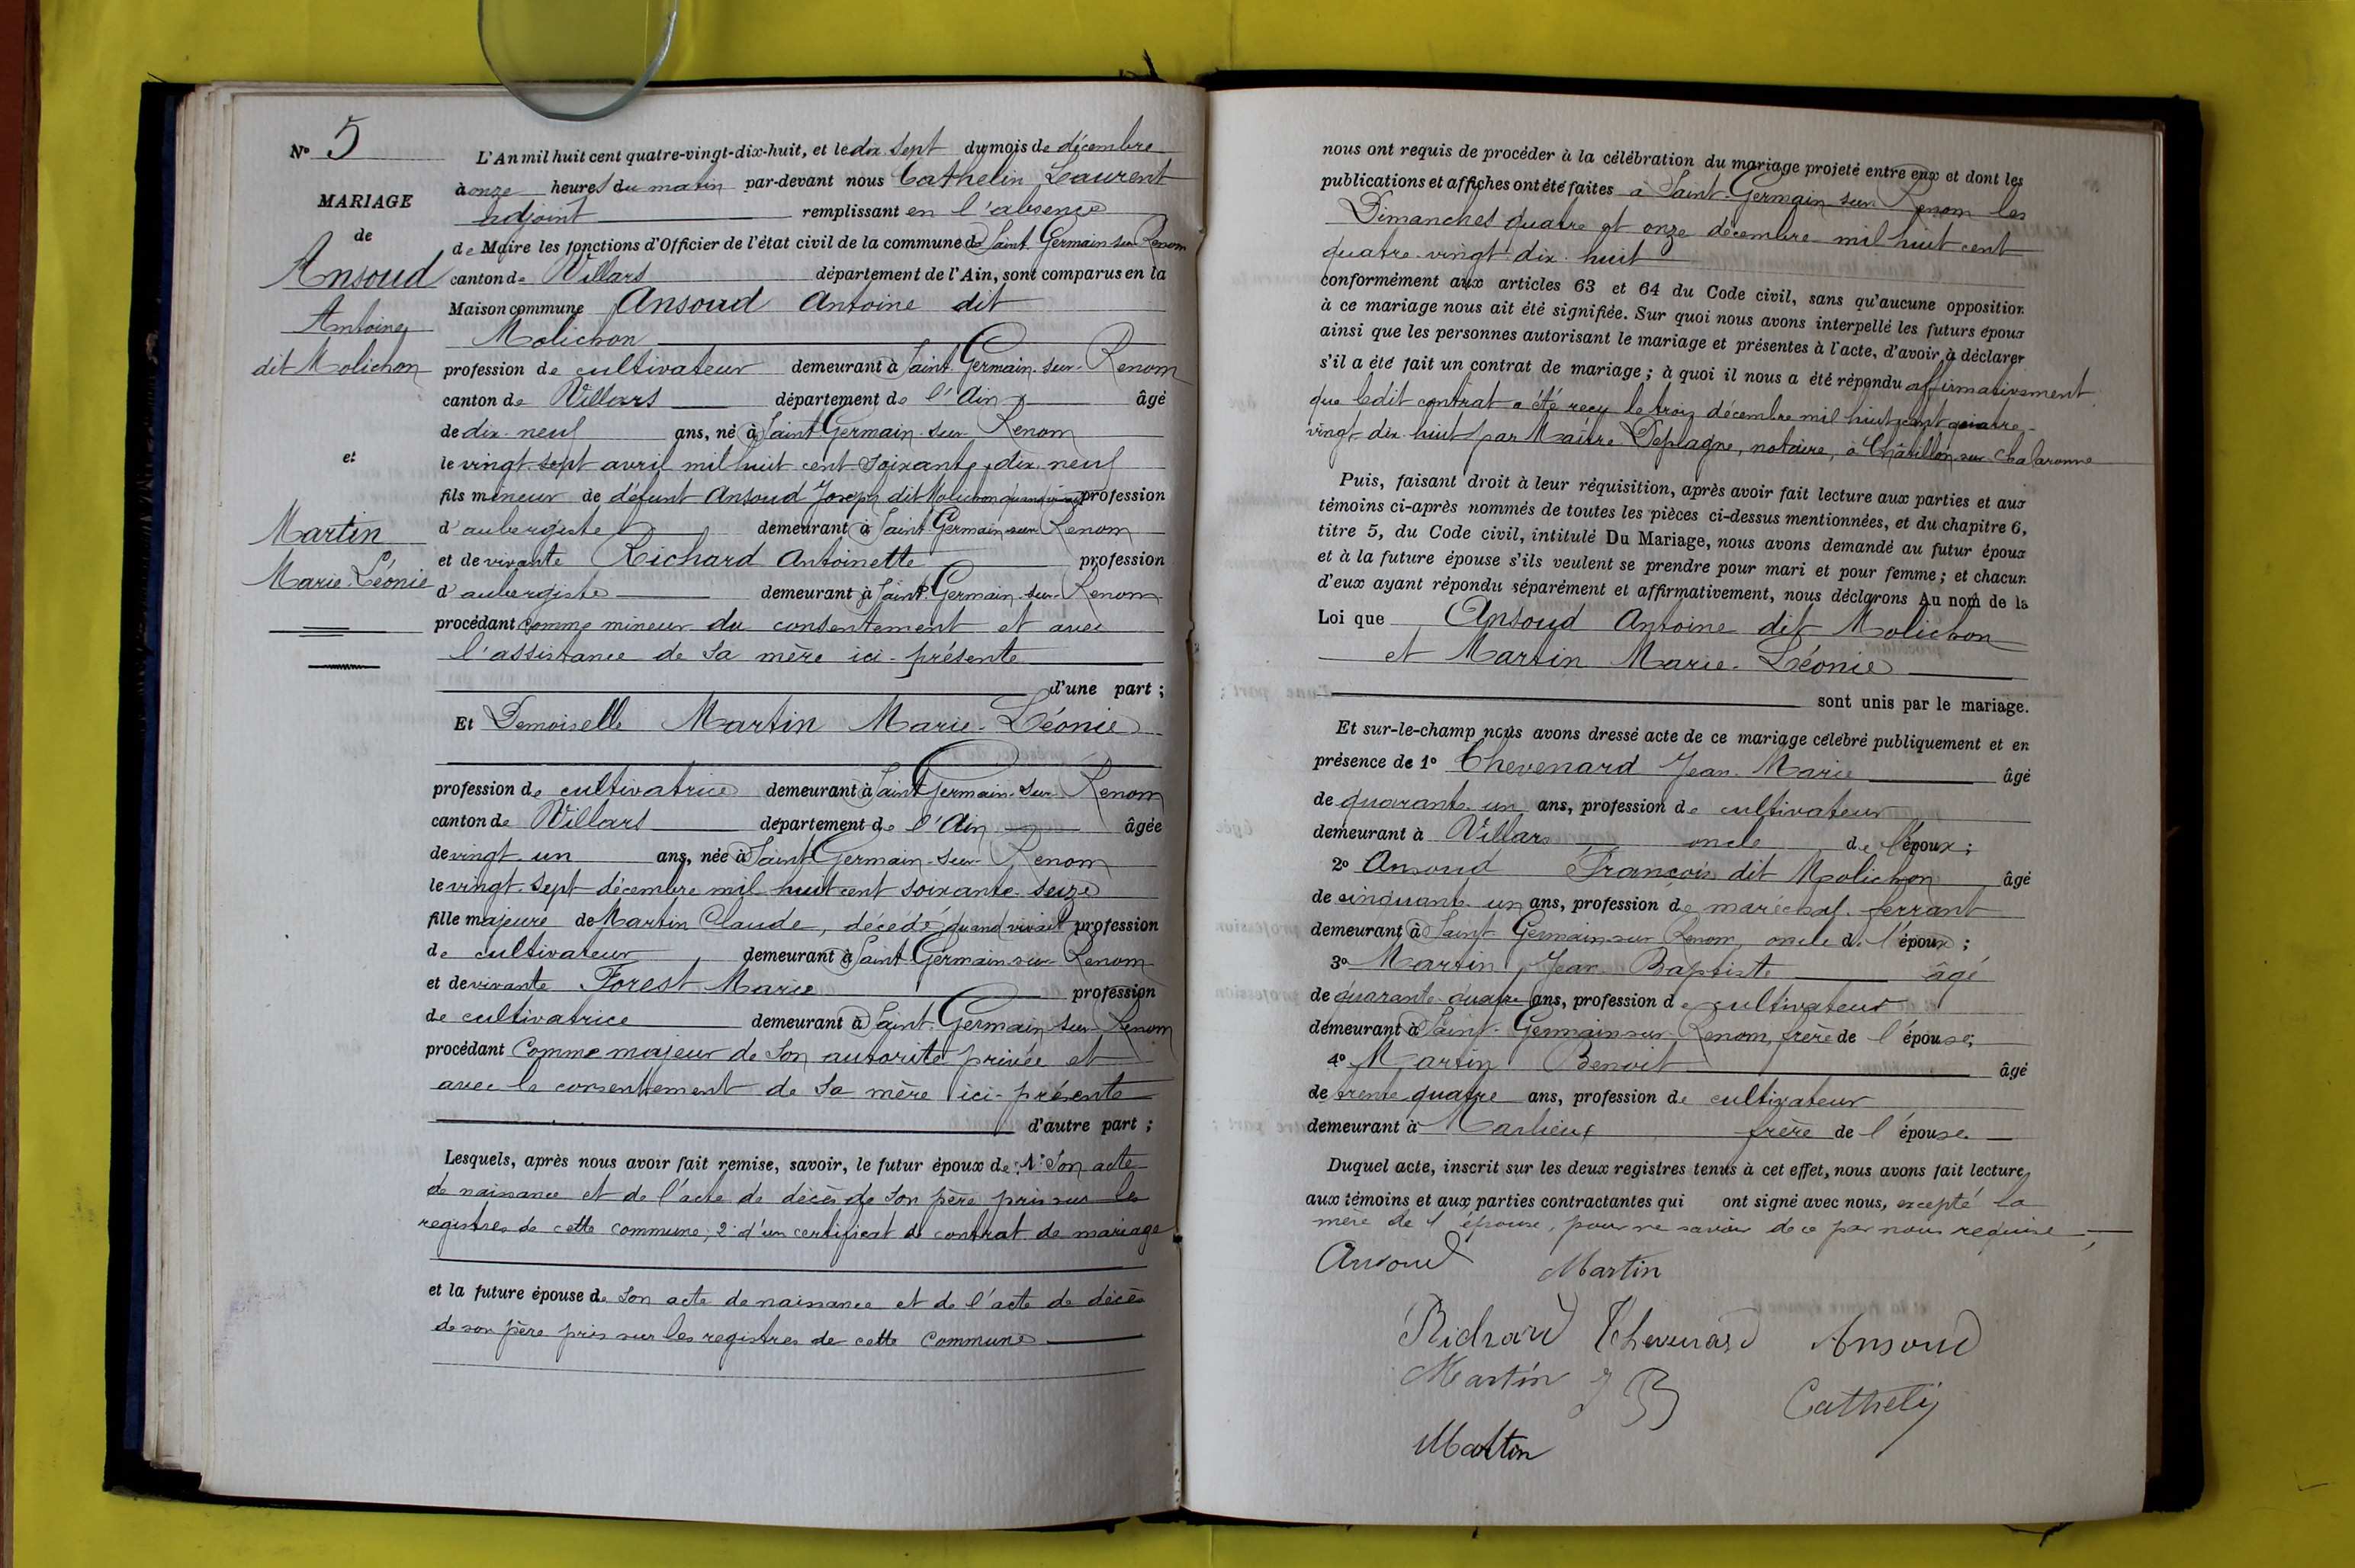 N° 5
MARIAGE
de
Ansoud
Antoine
dit Molichon
et
Martin
Marie-Léonie
L'An mil huit cent quatre-vingt-dix-huit, et le dix sept du mois de décembre
à onze heures du matin par-devant nous Cathelin Laurent
adjoint remplissant en l'absence
de Maire les fonctions d'Officier de l'état civil de la commune de Saint-Germain-sur-Renom
canton de Villars département de l'Ain, sont comparus en la
Maison commune Ansoud Antoine dit
Molichon
profession de cultivateur demeurant à Saint-Germain-sur-Renom
canton de Villars département de l'Ain âgé
de dix-neuf ans, né à Saint Germain-sur-Renom
le vingt-sept avril mil huit cent soixante-dix-neuf
fils mineur de défunt Ansoud Joseph dit Molichon quand vivait profession
d'aubergiste demeurant à Saint Germain-sur-Renom
et de vivante Richard Antoinette profession
d'aubergiste demeurant à Saint-Germain-sur-Renom
procédant comme mineur du consentement et avec
l'assistance de sa mère ici-présente
d'une part ;
Et Demoiselle Martin Marie-Léonie
profession de cultivatrice demeurant à Saint Germain-sur-Renom
canton de Villars département de l'Ain âgée
de vingt-un ans, née à Saint-Germain-sur-Renom
le vingt-sept décembre mil huit cent soixante-seize
fille majeure de Martin Claude, décédé, quand vivait profession
de cultivateur demeurant à Saint-Germain-sur-Renom
et de vivante Forest Marie profession
de cultivatrice demeurant à Saint-Germain-sur-Renom
procédant comme majeur de son autorité privée et
avec le consentement de sa mère ici-présente
d'autre part ;
Lesquels, après nous avoir fait remise, savoir, le futur époux de : 1° Son acte
de naissance et de l'acte de décès de son père pris sur les
registres de cette commune ; 2° d'un certificat de contrat de mariage
et la future épouse de son acte de naissance et de l'acte de décès
de son père pris sur les registres de cette commune
nous ont requis de procéder à la célébration du mariage projeté entre eux et dont les
publications et affiches ont été faites à Saint-Germain-sur-Renom les
Dimanches quatre et onze décembre mil huit cent
quatre-vingt-dix-huit
conformément aux articles 63 et 64 du Code civil, sans qu'aucune opposition
à ce mariage nous ait été signifiée. Sur quoi nous avons interpellé les futurs époux
ainsi que les personnes autorisant le mariage et présentes à l'acte, d'avoir à déclarer
s'il a été fait un contrat de mariage ; à quoi il nous a été répondu affirmativement
que ledit contrat a été reçu le trois décembre mil huit cent quatre-
vingt-dix-huit par Maître Deplagne, notaire, à Châtillon-sur-Chalaronne
Puis, faisant droit à leur réquisition, après avoir fait lecture aux parties et aux
témoins ci-après nommés de toutes les pièces ci-dessus mentionnées, et du chapitre 6,
titre 5, du Code civil, intitulé Du Mariage, nous avons demandé au futur époux
et à la future épouse s'ils veulent se prendre pour mari et pour femme ; et chacun
d'eux ayant répondu séparément et affirmativement, nous déclarons Au nom de la
Loi que Ansoud Antoine dit Molichon
et Martin Marie-Léonie
sont unis par le mariage.
Et sur-le-champ nous avons dressé acte de ce mariage célébré publiquement et en
présence de 1° Chevenard Jean-Marie âgé
de quarante-un ans, profession de cultivateur
demeurant à Villars oncle de l'époux ;
2° Ansoud François dit Molichon âgé
de cinquante-un ans, profession de maréchal-ferrant
demeurant à Saint-Germain-sur-Renom, oncle de l'époux ;
3° Martin Jean-Baptiste âgé
de quarante-quatre ans, profession de cultivateur
demeurant à Saint-Germain-sur-Renom, frère de l'épouse ;
4° Martin Benoit âgé
de trente quatre ans, profession de cultivateur
demeurant à Marlieux frère de l'épouse.
Duquel acte, inscrit sur les deux registres tenus à cet effet, nous avons fait lecture
aux témoins et aux parties contractantes qui ont signé avec nous, excepté la
mère de l'épouse, pour ne savoir de ce par nous requise
Ansoud Martin
Richard Chevenard Ansoud
Martin J B Cathelin
Martin